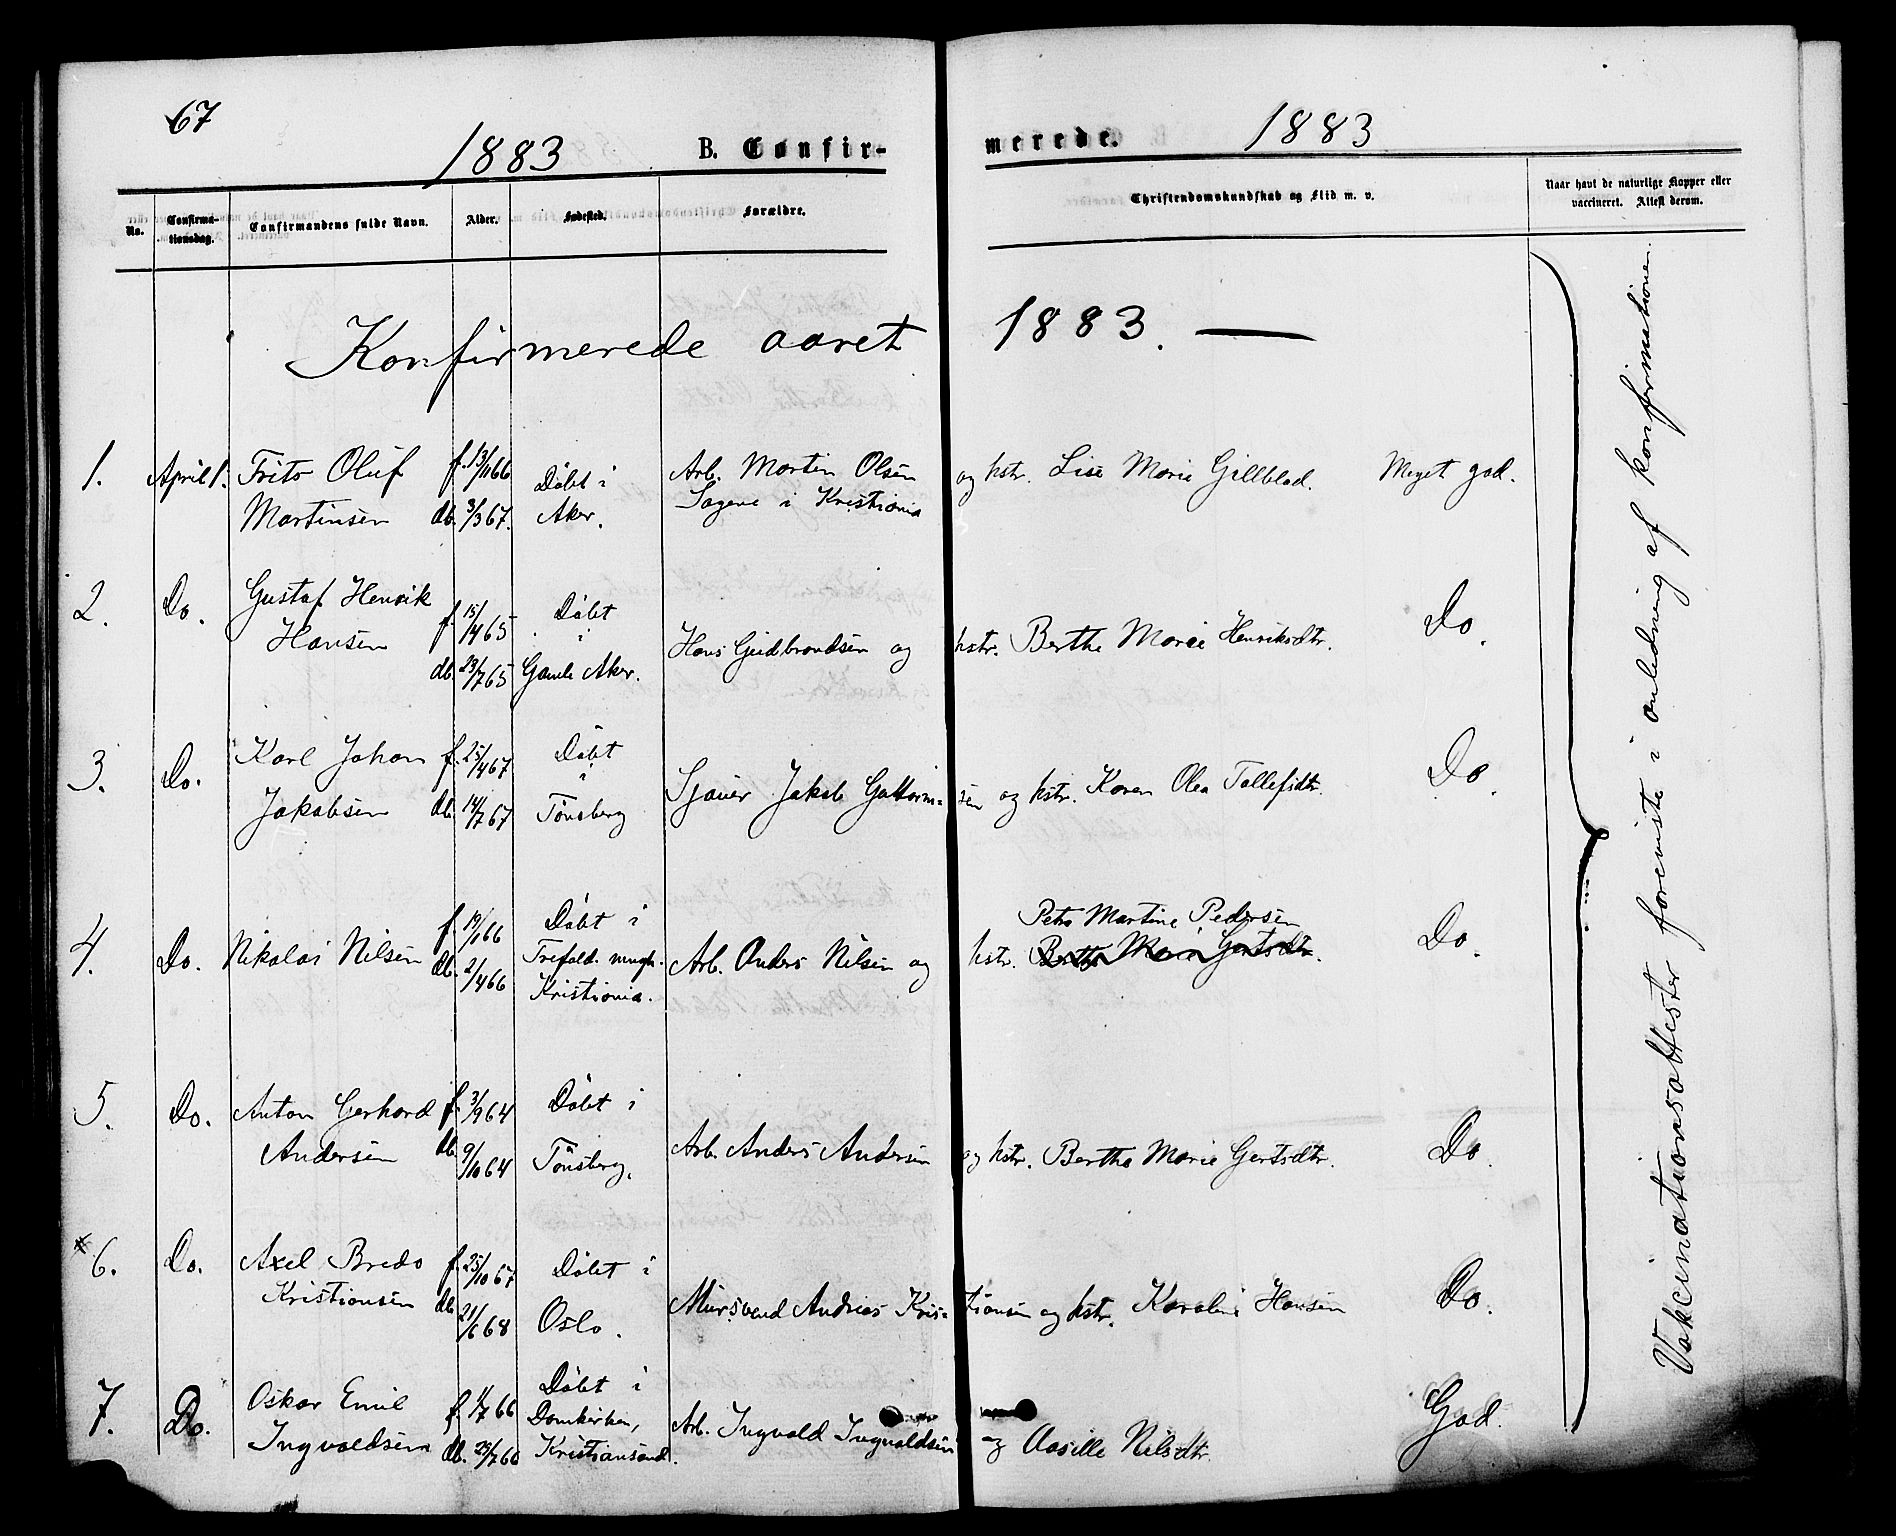 67
1883 B. Confir-
merede. 1883
No. Confirma-tionsdag. Confirmandens fulde Navn. Alder. Fødested. Forældre.
Christendomskundskab og Flid m. v. Naar havt de naturlige Kopper eller vaccineret. Attest derom.
Konfirmerede aaret 1883. —
1. April 1. Frits Oluf f. 13/11 66 Döbt i Arb. Martin Olsen og hstr. Lise Marie Gillblad. Meget god.
Martinsen db. 3/3 67. Aker. Sagene i Kristiania
2. Do. Gustaf Henrik f. 15/4 65 Döbt
Hansen db. 23/7 65 i Gamle Aker. Hans Gudbrandsen og hstr. Berthe Marie Henriksdtr. Do.
3. Do. Karl Johan f. 25/4 67 Döbt
Jakobsen db. 14/7 67 i Tönsberg Sjauer Jakob Guttorm-sen og hstr. Karen Olea Tollefsdtr. Do.
Petra Martine Pedersen
4. Do. Nikolai Nilsen f. 19/1 66 Döbt i
db. 2/4 66 Trefold. mngh. Kristiania. Arb. Anders Nilsen og hstr. Berthe Marie Gertsdtr. Do.
5. Do. Anton Gerhard f. 3/9 64 Döbt i
Andersen db. 9/10 64 Tönsberg. Arb. Anders Andersen og hstr. Bertha Marie Gertsdtr. Do.
6. Do. Axel Bredo f. 25/10 67 Döbt i
Kristiansen db. 21/6 68 Oslo. Mursvend Andreas Kris-tiansen og hstr. Karoline Hansen Do.
7. Do. Oskar Emil f. 1/7 66 Döbt i Domkirken,
Ingvaldsen db. 29/7 66 Kristiansand. Arb. Ingvald Ingvaldsen og Aasille Nilsdtr. God.
Vakcinationsattester foreviste i anledning af konfirmationen.